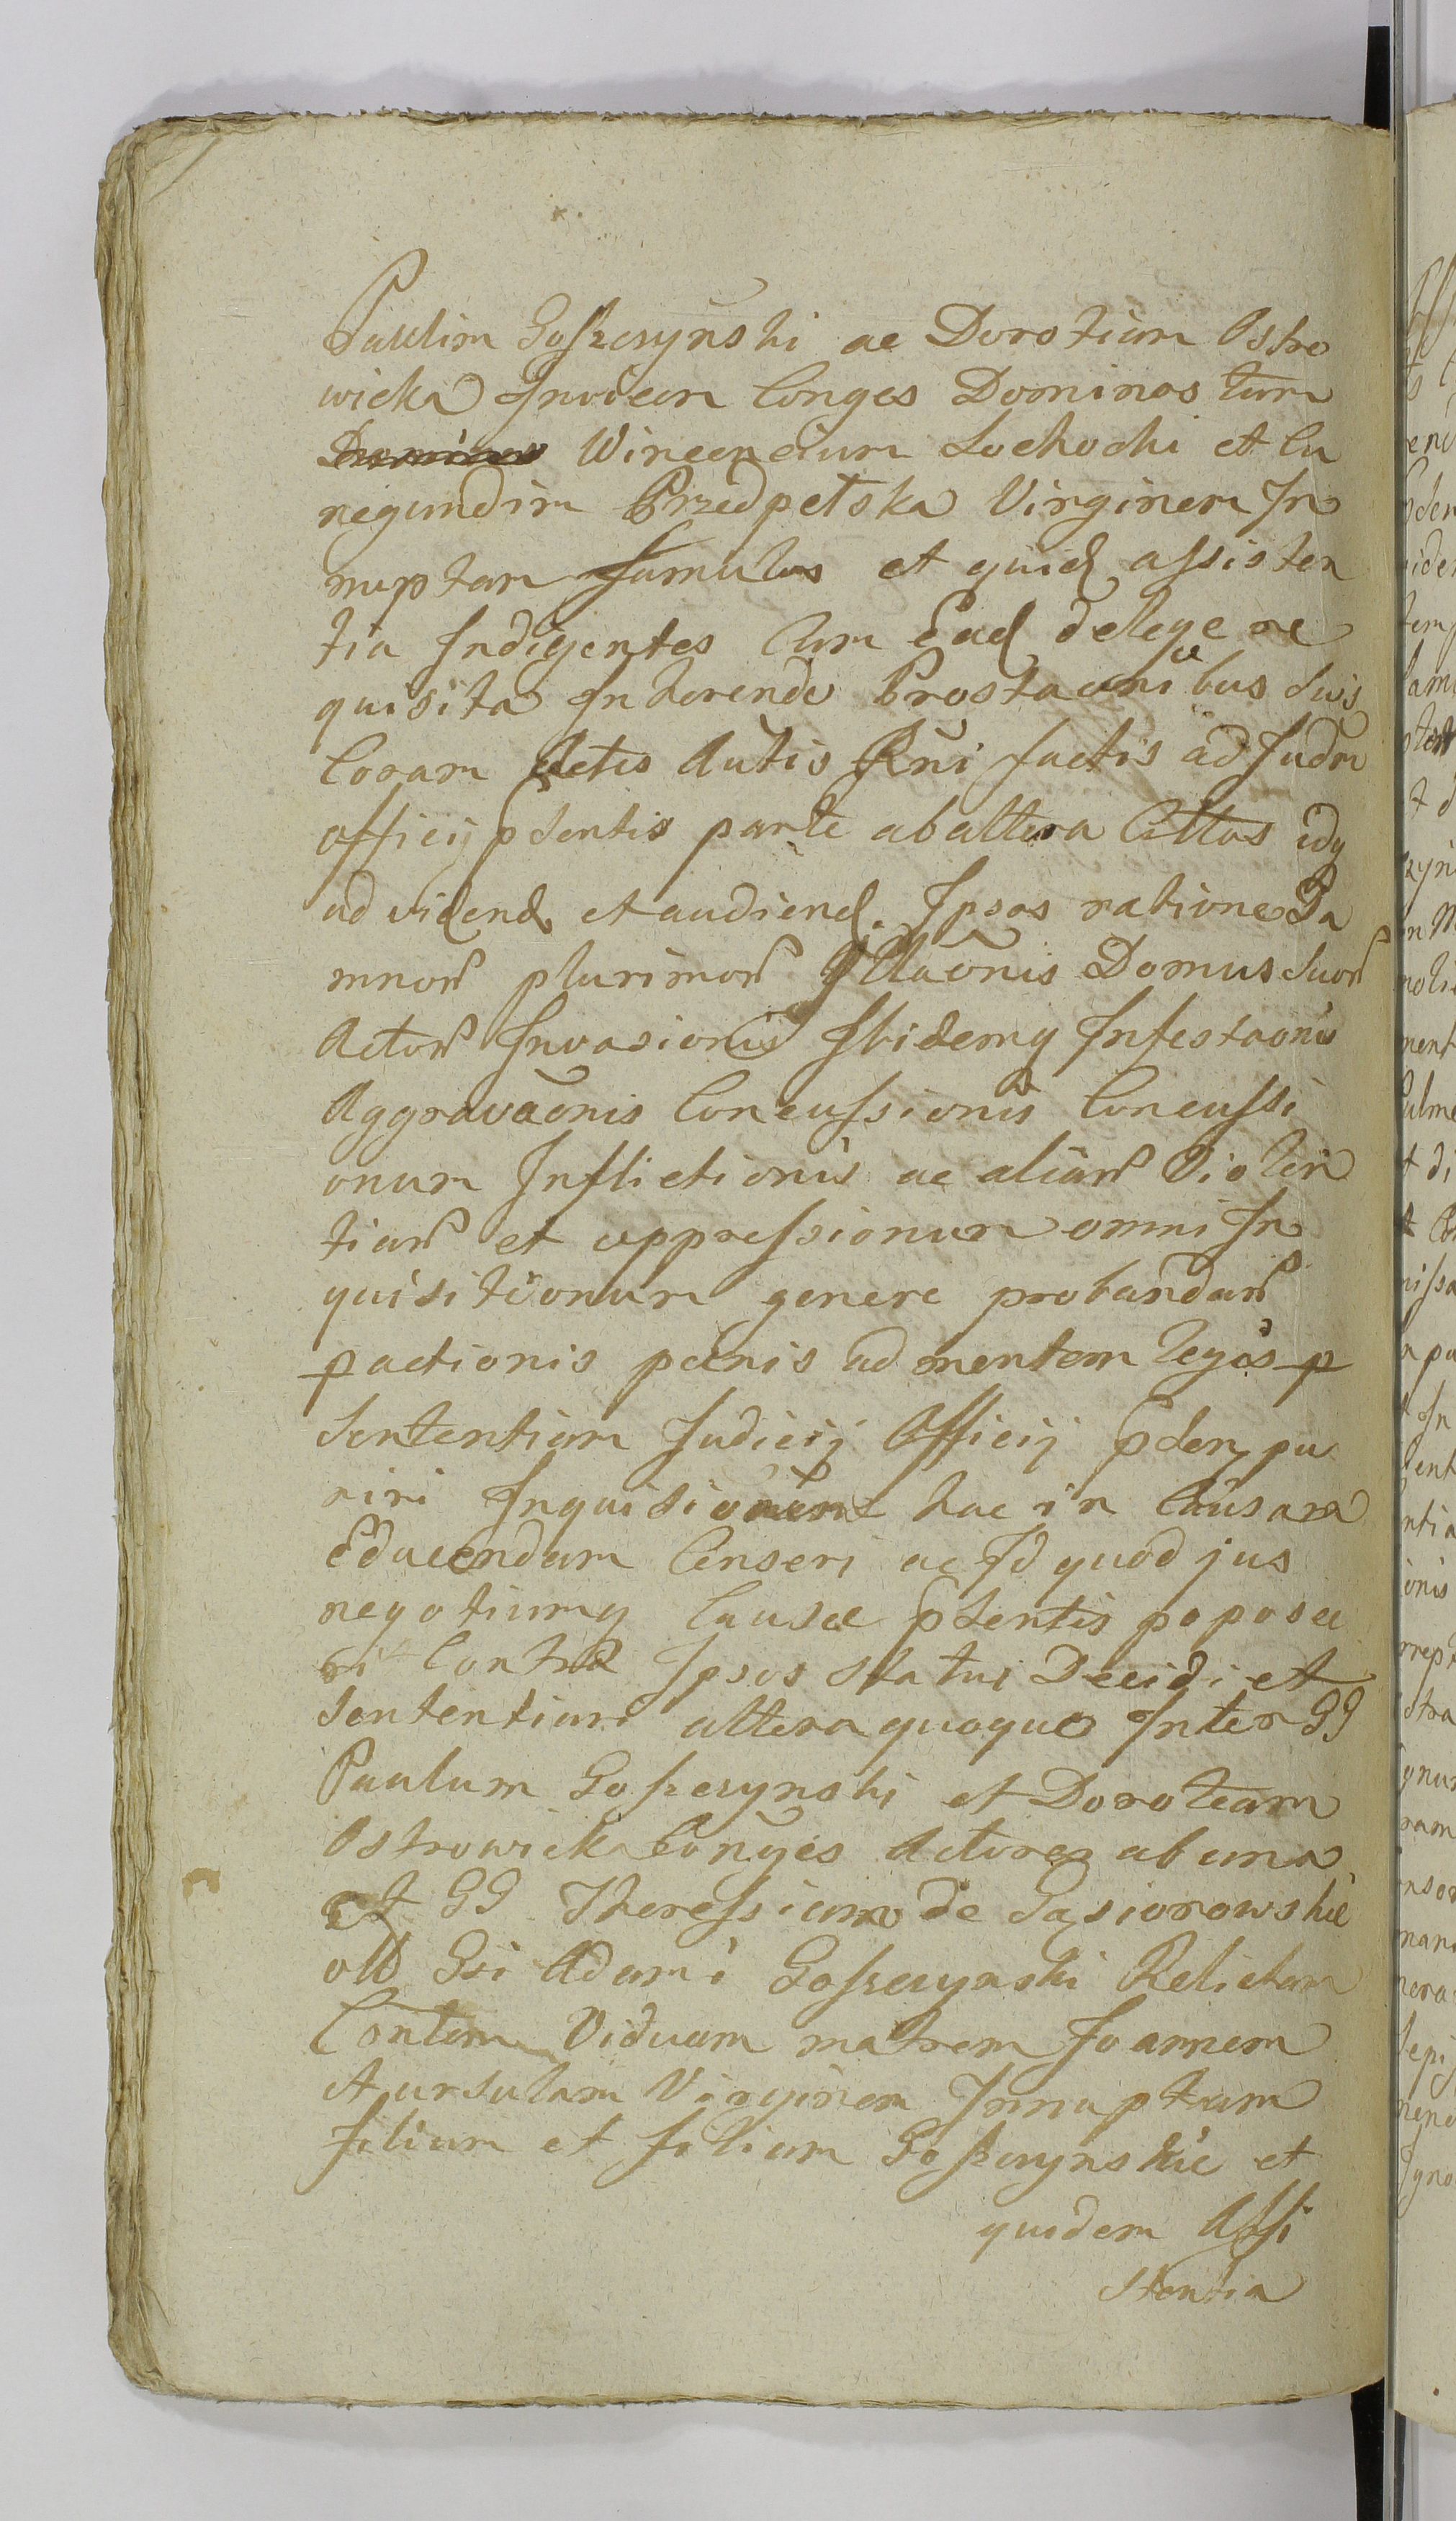 Paulum Goszczynski ac Dorotheam Ostro
wicka Invicem Conges Dominos tum
Dominos Wincencium Lochocki et Cu
negundim Przedpełska Virginem In
nuptam famulos et quid assisten
tia Indigentes Cum Ead de lege re
quisita Inhærendo Protestaonibus Suis
Coram Actis Autis Rñi factis ad Judm
officij pdentis parte ab altera Cittos idq
ad vidend et audiend. Ipsos ratione Da
mnor plurimor Illaõnis Domus Suor
Actor Invasionis Ibidemq Infestaonis
Aggravaõnis Concussionis Concussi
onum Inflictionis ac aliar Violen
tiar et oppressionum omni In
quisitionum genere probandar
pactionis pænis ad mentem legis p
Sententiam Judicij Officij pden pu
niri Inquisitionem hac in Causam
Educendam Censeri ac Id quod jus
negotiumq Causæ pdentis poposce
rit Contra Ipsos Statui Decidi et
Sententiari altera quoque Inter GG
Paulum Goszczynski et Doroteam
Ostrowick Conges Actores ab una
et GG Theressiam de Gąsiorowskie
olb Gsi Adami Goszczynski Relictam
Contem Viduam matrem Joannem
et ursulam Virginem Innuptam
filium et filiam Goszczynskie et
quidem Assi
stentia